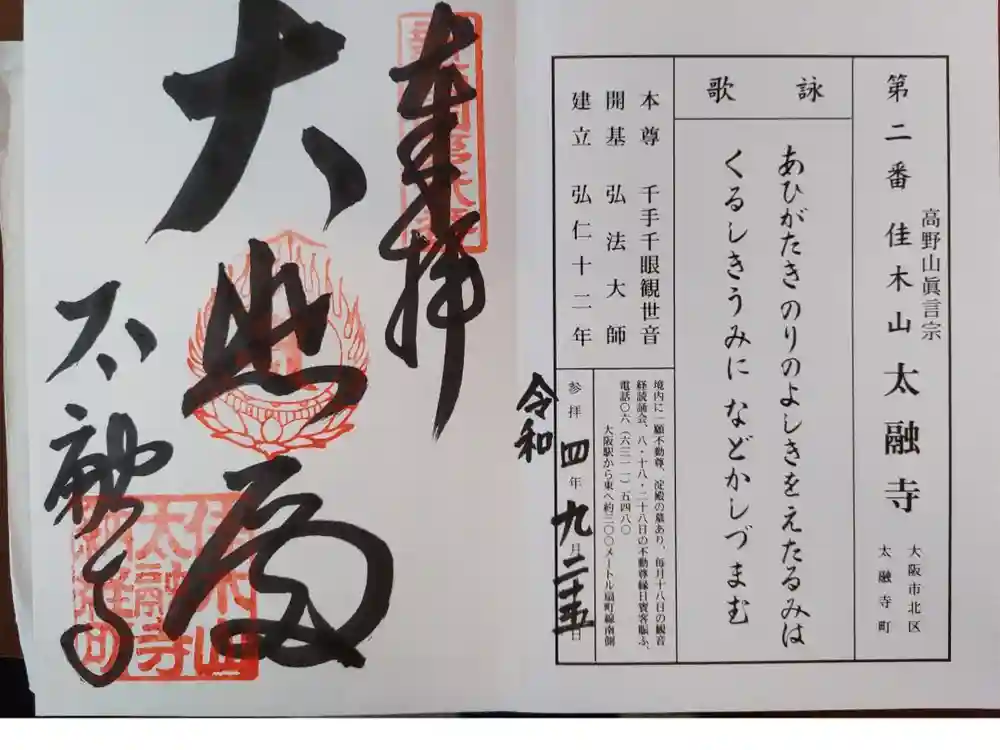 高野山眞言宗
第二番 佳木山 太融寺
大阪市北区
太融寺町
詠歌
あひがたき のりのよしきをえたるみは
くるしきうみに などかしづまむ
本尊 千手千眼観世音
開基 弘法大師
建立 弘仁十二年
境内に一願不動尊、淀殿の墓あり、毎月十八日の観音
経読誦会、八・十八・二十八日の不動尊縁日賓客賑ふ、
電話〇六(六三一一)五四八〇
大阪駅から東へ約三〇〇メートル扇町線南側
令和
参拝 四年九月二十五日
奉拝
大悲殿
太融寺
佳木山
太融寺